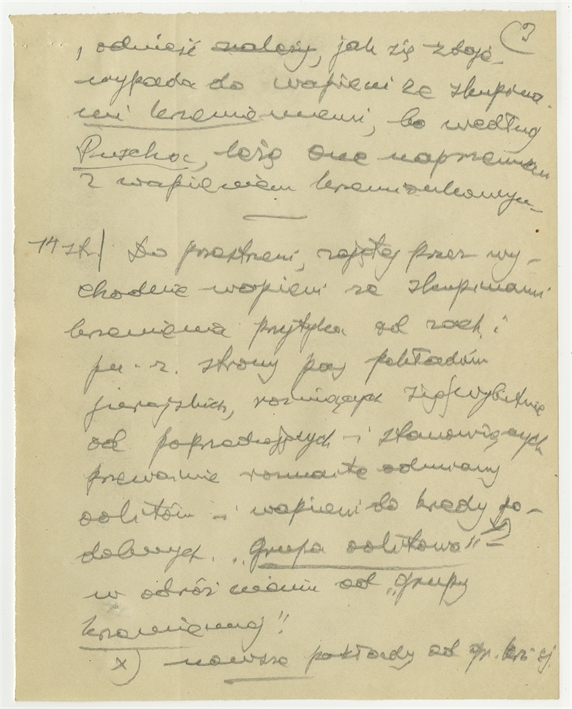 3
, odnieść należy, jak się zdaje
wypada do wapieni ze skupina-
mi krzemiennemi, bo według
Puscha, leżą one naprzemian
z wapieniem
14 str. / Do przestrzeni, zajętej przez wy-
chodnie wapieni ze skupinami
krzemienia przytyka od zach. i
pn. z. strony pas pokładów
jurajskich, różniących się wybitnie
od poprzedzających i stanowiących
przeważnie rozmaite odmiany
oolitów i wapieni do kredy po-
dobnych. „Grupa oolitowa" x) –
w odróżnieniu od „grupy
krzemiennej"!
x) nowsze pokłady od gr. krz ej.